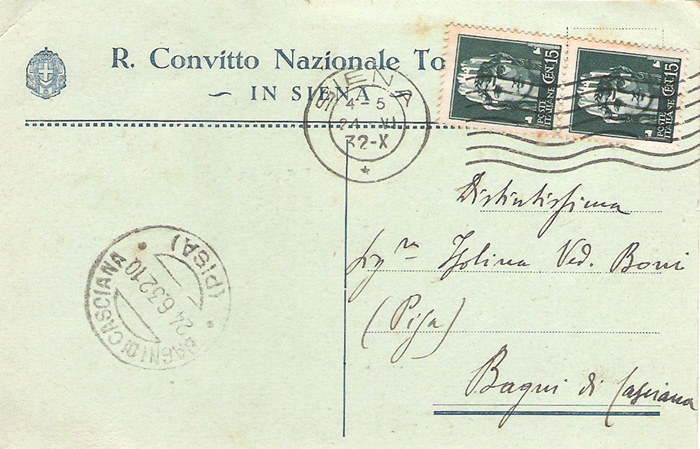 R. Convitto Nazionale To
IN SIENA
SIENA
4-5
24 VI
32-X
POSTE ITALIANE CENT 15
POSTE ITALIANE CENT 15
Distintissima
Sig.ra Isolina Ved. Boni
(Pisa)
Bagni di Casciana
BAGNI DI CASCIANA
24.6.32.10
(PISA)